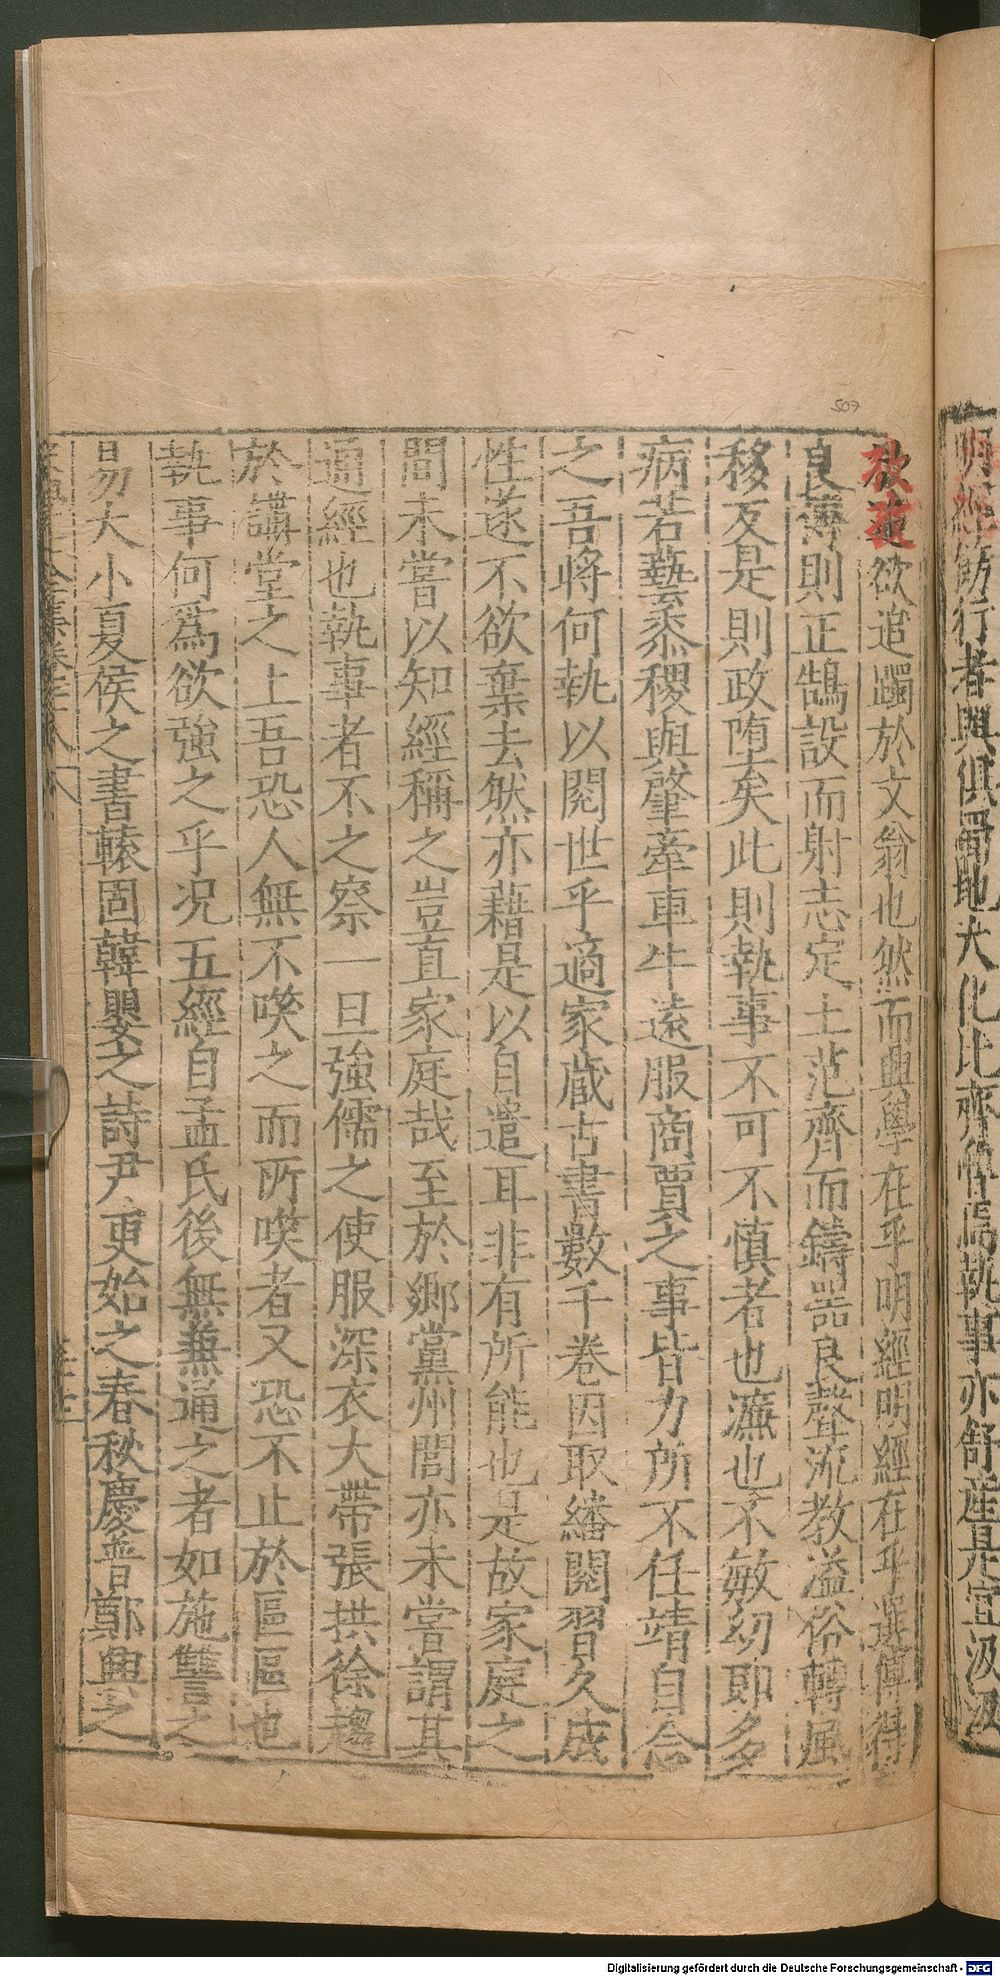 明經飭行者與俱蜀地大化比齊魯焉執事亦舒産是宜汲汲
欲追躅於文翁也然而興學在乎明經明經在乎選傅得
良薄則正鵠設而射志定土范齊而鑄器良聲流教溢俗轉風
移反是則政堕矣此則執事不可不慎者也濂也不敏幼即多
病若藝黍稷與肇牽車牛遠服商賈之事皆力所不任靖自念
之吾將何執以閱世乎適家蔵古書數千卷因取繙閱習久成
性遂不欲棄去然亦藉是以自遣耳非有所能也是故家庭之
間未嘗以知經稱之豈直家庭哉至於鄉黨州閭亦未嘗謂其
通經也執事者不之察一旦強儒之使服深衣大帶張拱徐趨
於講堂之上吾恐人無不唉之而所唉者又恐不止於區區也
執事何爲欲強之乎况五經自孟氏後無兼通之者如施讐之
易大小夏侯之書轅固韓嬰之詩尹更始之春秋慶普鄭興之
507
Digitalisierung gefördert durch die Deutsche Forschungsgemeinschaft - DFG